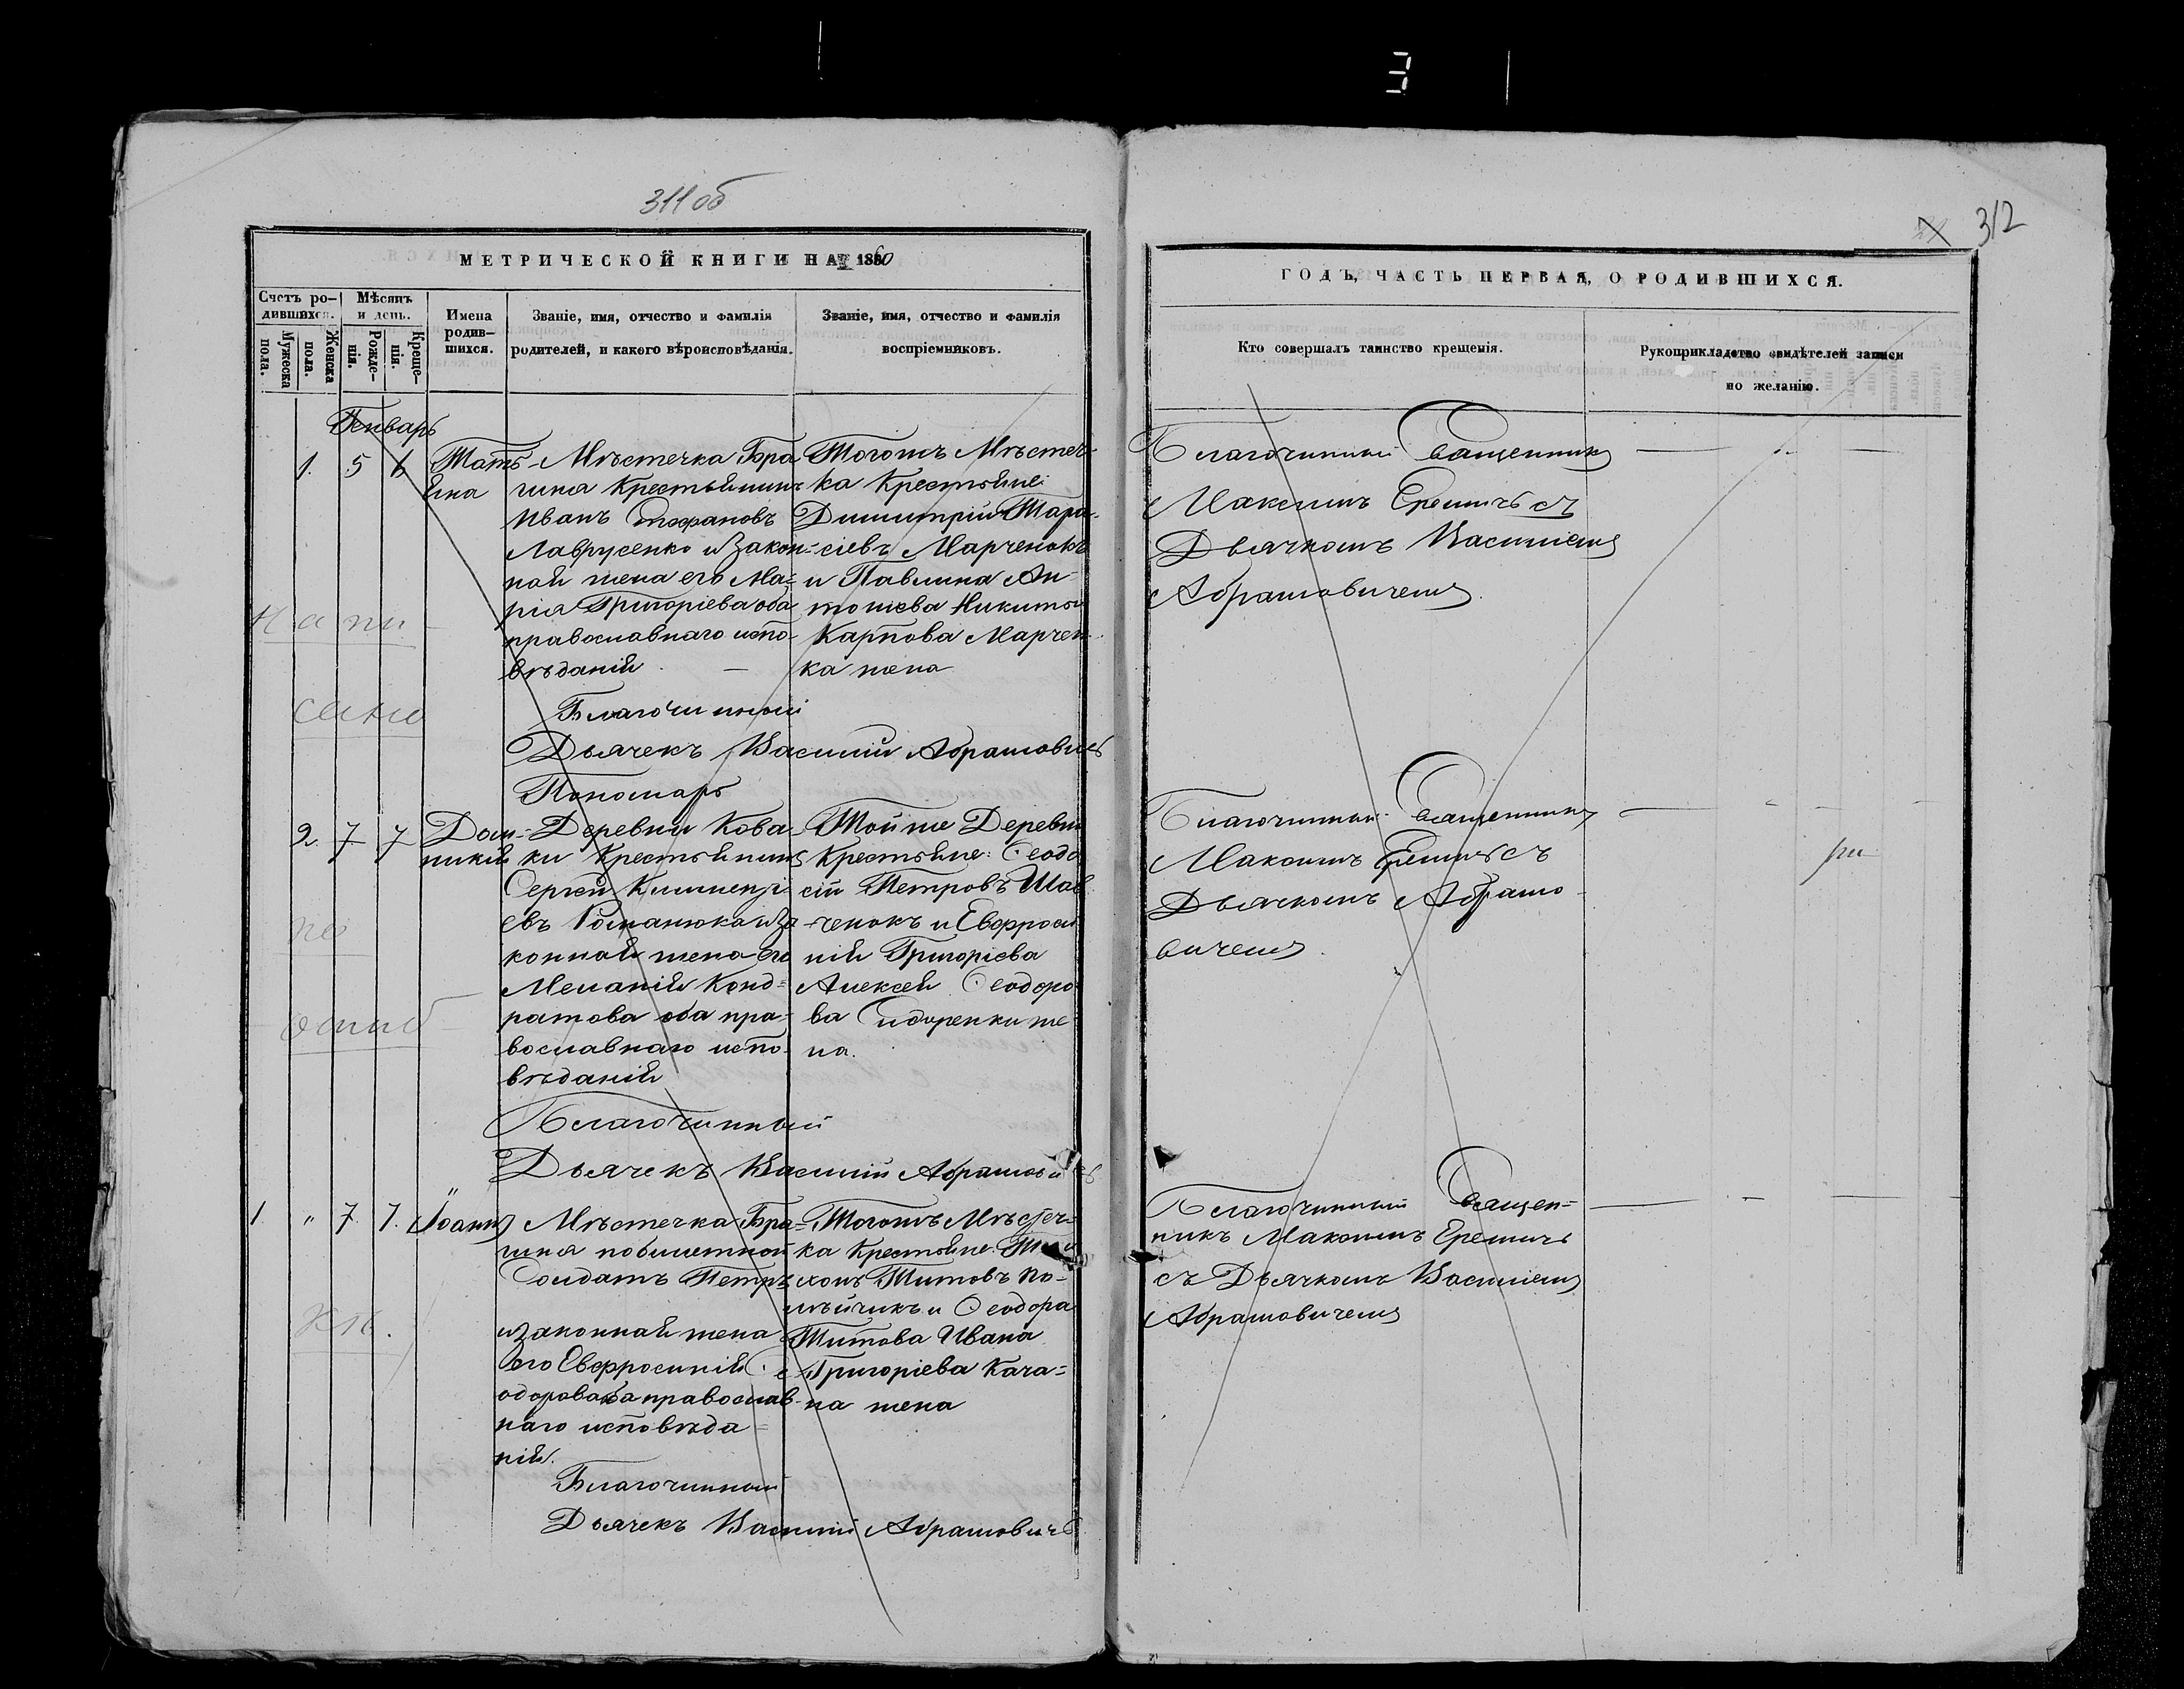 311 об
МЕТРИЧЕСКОЙ КНИГИ НА 1860
Счетъ ро-
дившихся.
Мужеска
пола.
Женска
пола.
Мѣсяцъ
и день.
Рожде-
нія.
Креще-
нія.
Имена
родив-
шихся.
Званіе, имя, отчество и фамилія
родителей, и какого вѣроисповѣданія.
Званіе, имя, отчество и фамилія
воспріемниковъ.
Январь
1. 5 6
Мѣстечка Бра
гиня Крестьянинъ
Иванъ Стефановъ
Лаврусенко и закон-
ная жена его Ма-
рія Григоріева оба
православнаго испо-
вѣданія
Тогожъ Мѣстеч-
ка Крестьяне:
Димитрій Тара-
сіевъ Марченокъ
и Павлина Ан-
тоніева Никиты
Карпова Марчен-
ка жена
Благочинный
Дьячекъ Василій Абрамовичъ
Пономарь
2. 7 7
Дом-
никія
Деревни Кова-
ки Крестьянинъ
Сергей
евъ Романюка и за
конная жена его
Меланія Конд-
ратова оба пра-
вославнаго испо-
вѣданія
Тойже Деревни
Крестьяне: Ѳеодо
сій Петровъ Шав
ченокъ и Евфроси
нія Григоріева
Алексея Ѳеодоро
ва Сидоренки же
на.
Благочинный
Дьячекъ Василій Абрамовичъ
1. " 7. 7. Іоаннъ
Мѣстечка Бра-
гиня побилетной
Солдатъ Петръ
и законная жена
его Евфросинія Ѳе
одорова оба православ-
наго исповѣда-
нія.
Тогожъ Мѣстеч-
ка Крестьяне:
Титовъ По-
лѣйчикъ и Ѳеодора
Титова Ивана
Григоріева Кача-
на жена
Благочинный
Дьячекъ Василій Абрамовичъ
На пи
сано
по
ошиб
кѣ.
312
ГОДЪ, ЧАСТЬ ПЕРВАЯ, О РОДИВШИХСЯ.
Кто совершалъ таинство крещенія.
Рукоприкладство свидѣтелей записи
по желанію.
Благочинный Священникъ
Максимъ Еремичъ съ
Дьячкомъ Василіемъ
Абрамовичемъ.
Благочинный Священникъ
Максимъ Еремичъ съ
Дьячкомъ Абрамо-
вичемъ.
Благочинный Священ-
никъ Максимъ Еремичъ
съ Дьячкомъ Василіемъ
Абрамовичемъ